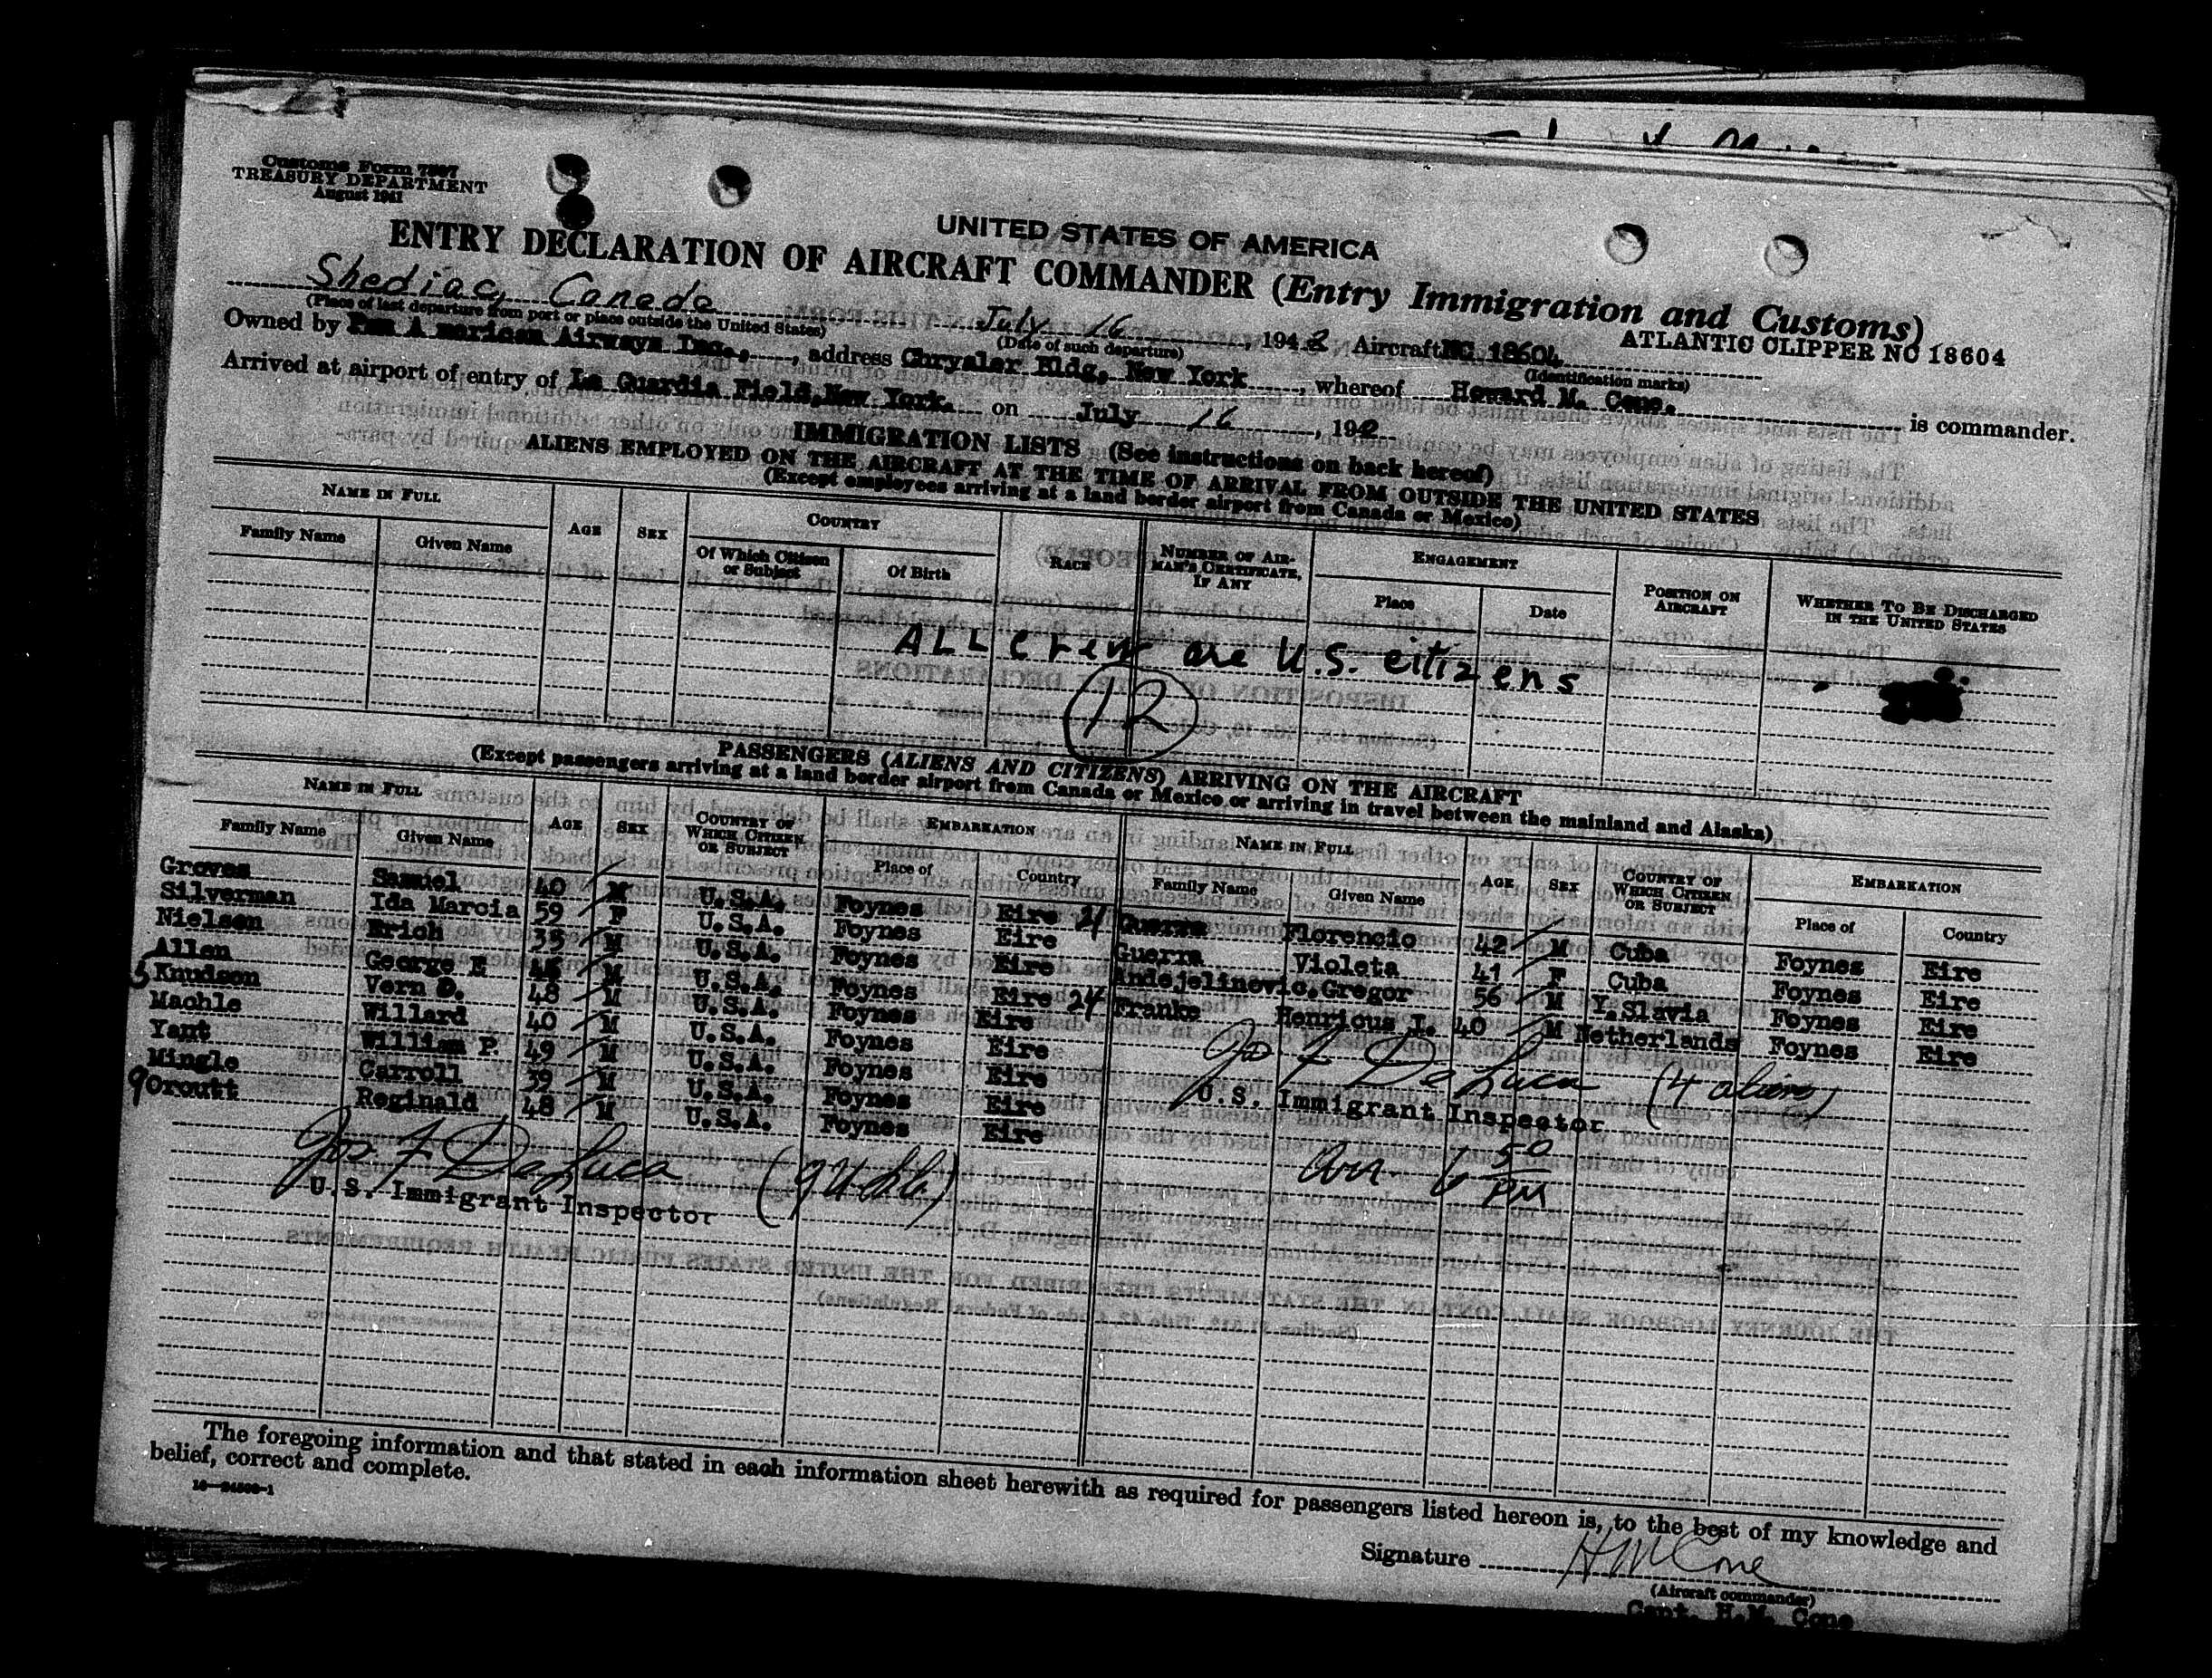 Customs Form 7507
TREASURY DEPARTMENT
August 1941
UNITED STATES OF AMERICA
ENTRY DECLARATION OF AIRCRAFT COMMANDER (Entry Immigration and Customs)
Shediac, Canada July 16, 1942 Aircraft NC 18604 ATLANTIC CLIPPER NC 18604
(Place of last departure from port or place outside the United States) (Date of such departure) (Identification marks)
Owned by Pan American Airways Inc., address Chrysler Bldg, New York, whereof Howard M. Cone. is commander.
Arrived at airport of entry of La Guardia Field, New York. on July 16, 1942
IMMIGRATION LISTS (See instructions on back hereof)
ALIENS EMPLOYED ON THE AIRCRAFT AT THE TIME OF ARRIVAL FROM OUTSIDE THE UNITED STATES
(Except employees arriving at a land border airport from Canada or Mexico)
NAME IN FULL AGE SEX COUNTRY RACE NUMBER OF AIRMAN'S CERTIFICATE, IF ANY ENGAGEMENT POSITION ON AIRCRAFT WHETHER TO BE DISCHARGED IN THE UNITED STATES
Family Name Given Name Of Which Citizen or Subject Of Birth Place Date
ALL crew are U.S. citizens
12
PASSENGERS (ALIENS AND CITIZENS) ARRIVING ON THE AIRCRAFT
(Except passengers arriving at a land border airport from Canada or Mexico or arriving in travel between the mainland and Alaska)
NAME IN FULL AGE SEX COUNTRY OF WHICH CITIZEN OR SUBJECT EMBARKATION NAME IN FULL AGE SEX COUNTRY OF WHICH CITIZEN OR SUBJECT EMBARKATION
Family Name Given Name Place of Country Family Name Given Name Place of Country
Groves Samuel 40 M U.S.A. Foynes Eire 21 Guerra Florencio 42 M Cuba Foynes Eire
Silverman Ida Marcia 59 F U.S.A. Foynes Eire Guerra Violeta 41 F Cuba Foynes Eire
Nielsen Erich 35 M U.S.A. Foynes Eire Andejelinovic. Gregor 56 M Y.Slavia Foynes Eire
Allen George E 46 M U.S.A. Foynes Eire 24 Franke Henricus J. 40 M Netherlands Foynes Eire
5 Knudson Vern O. 48 M U.S.A. Foynes Eire
Machle Willard 40 M U.S.A. Foynes Eire
Yant William P. 49 M U.S.A. Foynes Eire
Mingle Carroll 39 M U.S.A. Foynes Eire
9 Orcutt Reginald 48 M U.S.A. Foynes Eire
Jos F De Luca (4 aliens)
U.S. Immigrant Inspector
Jos F De Luca
U.S. Immigrant Inspector
Arr. 6 50 PM
The foregoing information and that stated in each information sheet herewith as required for passengers listed hereon is, to the best of my knowledge and
belief, correct and complete.
Signature HMCone
(Aircraft commander)
Capt. H.M. Cone